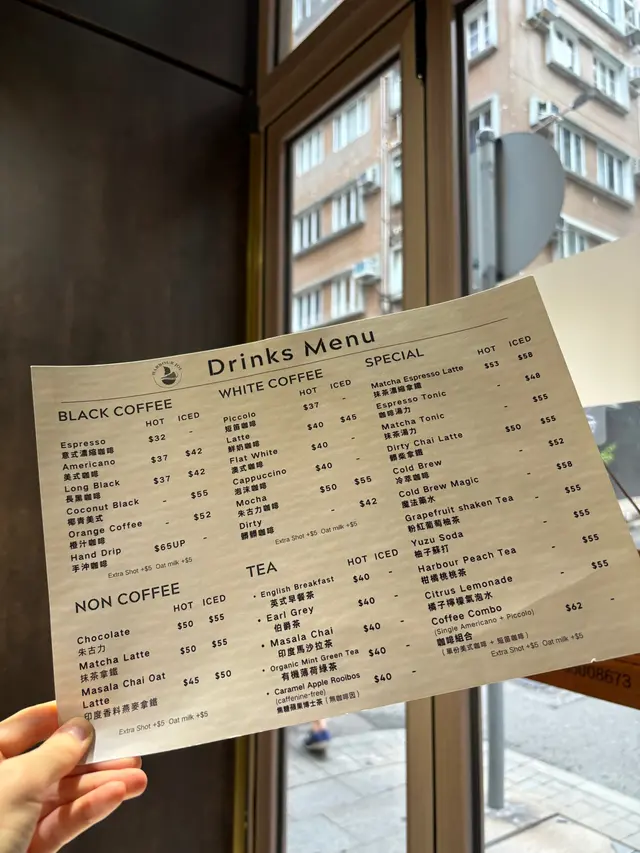 Drinks Menu
BLACK COFFEE
HOT ICED
Espresso $32 -
意式濃縮咖啡
Americano $37 $42
美式咖啡
Long Black $37 $42
長黑咖啡
Coconut Black - $55
椰青美式
Orange Coffee - $52
橙汁咖啡
Hand Drip $65UP -
手沖咖啡
Extra Shot +$5 Oat milk +$5
NON COFFEE
HOT ICED
Chocolate $50 $55
朱古力
Matcha Latte $50 $55
抹茶拿鐵
Masala Chai Oat Latte $45 $50
印度香料燕麥拿鐵
Extra Shot +$5 Oat milk +$5
WHITE COFFEE
HOT ICED
Piccolo $37 -
短笛咖啡
Latte $40 $45
鮮奶咖啡
Flat White $40 -
澳式咖啡
Cappuccino $40 -
泡沫咖啡
Mocha $50 $55
朱古力咖啡
Dirty - $42
髒髒咖啡
Extra Shot +$5 Oat milk +$5
TEA
HOT ICED
• English Breakfast $40 -
英式早餐茶
• Earl Grey $40 -
伯爵茶
• Masala Chai $40 -
印度馬沙拉茶
• Organic Mint Green Tea $40 -
有機薄荷綠茶
• Caramel Apple Rooibos $40 -
(caffeine-free)
焦糖蘋果博士茶（無咖啡因）
SPECIAL
HOT ICED
Matcha Espresso Latte $53 $58
抹茶濃縮拿鐵
Espresso Tonic - $48
咖啡湯力
Matcha Tonic - $55
抹茶湯力
Dirty Chai Latte $50 $55
髒柴拿鐵
Cold Brew - $52
冷萃咖啡
Cold Brew Magic - $58
魔法藥水
Grapefruit shaken Tea - $55
粉紅葡萄柚茶
Yuzu Soda - $55
柚子蘇打
Harbour Peach Tea - $55
柑橘桃桃茶
Citrus Lemonade - $55
橘子檸檬氣泡水
Coffee Combo $62 -
(Single Americano + Piccolo)
咖啡組合
（單份美式咖啡 + 短笛咖啡）
Extra Shot +$5 Oat milk +$5